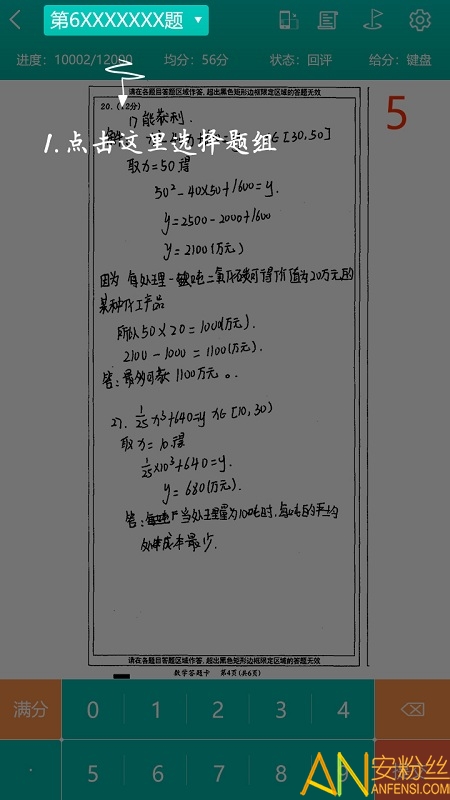 第6XXXXXXX题
进度：10002/12000 均分：56分 状态：回评 给分：键盘
请在各题目答题区域作答，超出黑色矩形边框限定区域的答题无效
5
20.（12分）
1）能获利.
∈[30,50]
1.点击这里选择题组
取x=50得
50²-40×50+1600=y.
y=2500-2000+1600
y=2100(万元)
因为 每处理一吨二氧化碳可得价值为20万元的
某种化工产品
所以50×20=1000(万元).
2100-1000=1100(万元).
答：最多可获1100万元。
2). 1/25 x³+640=y x∈[10,30)
取x=10得
1/25×10³+640=y.
y=680(万元).
答：当处理量为10吨时,每吨的平均
处理成本最少.
请在各题目答题区域作答，超出黑色矩形边框限定区域的答题无效
数学答题卡 第4页(共6页)
满分 0 1 2 3 4
. 5 6 7 8 9 提交
AN安粉丝
ANFENSI.COM